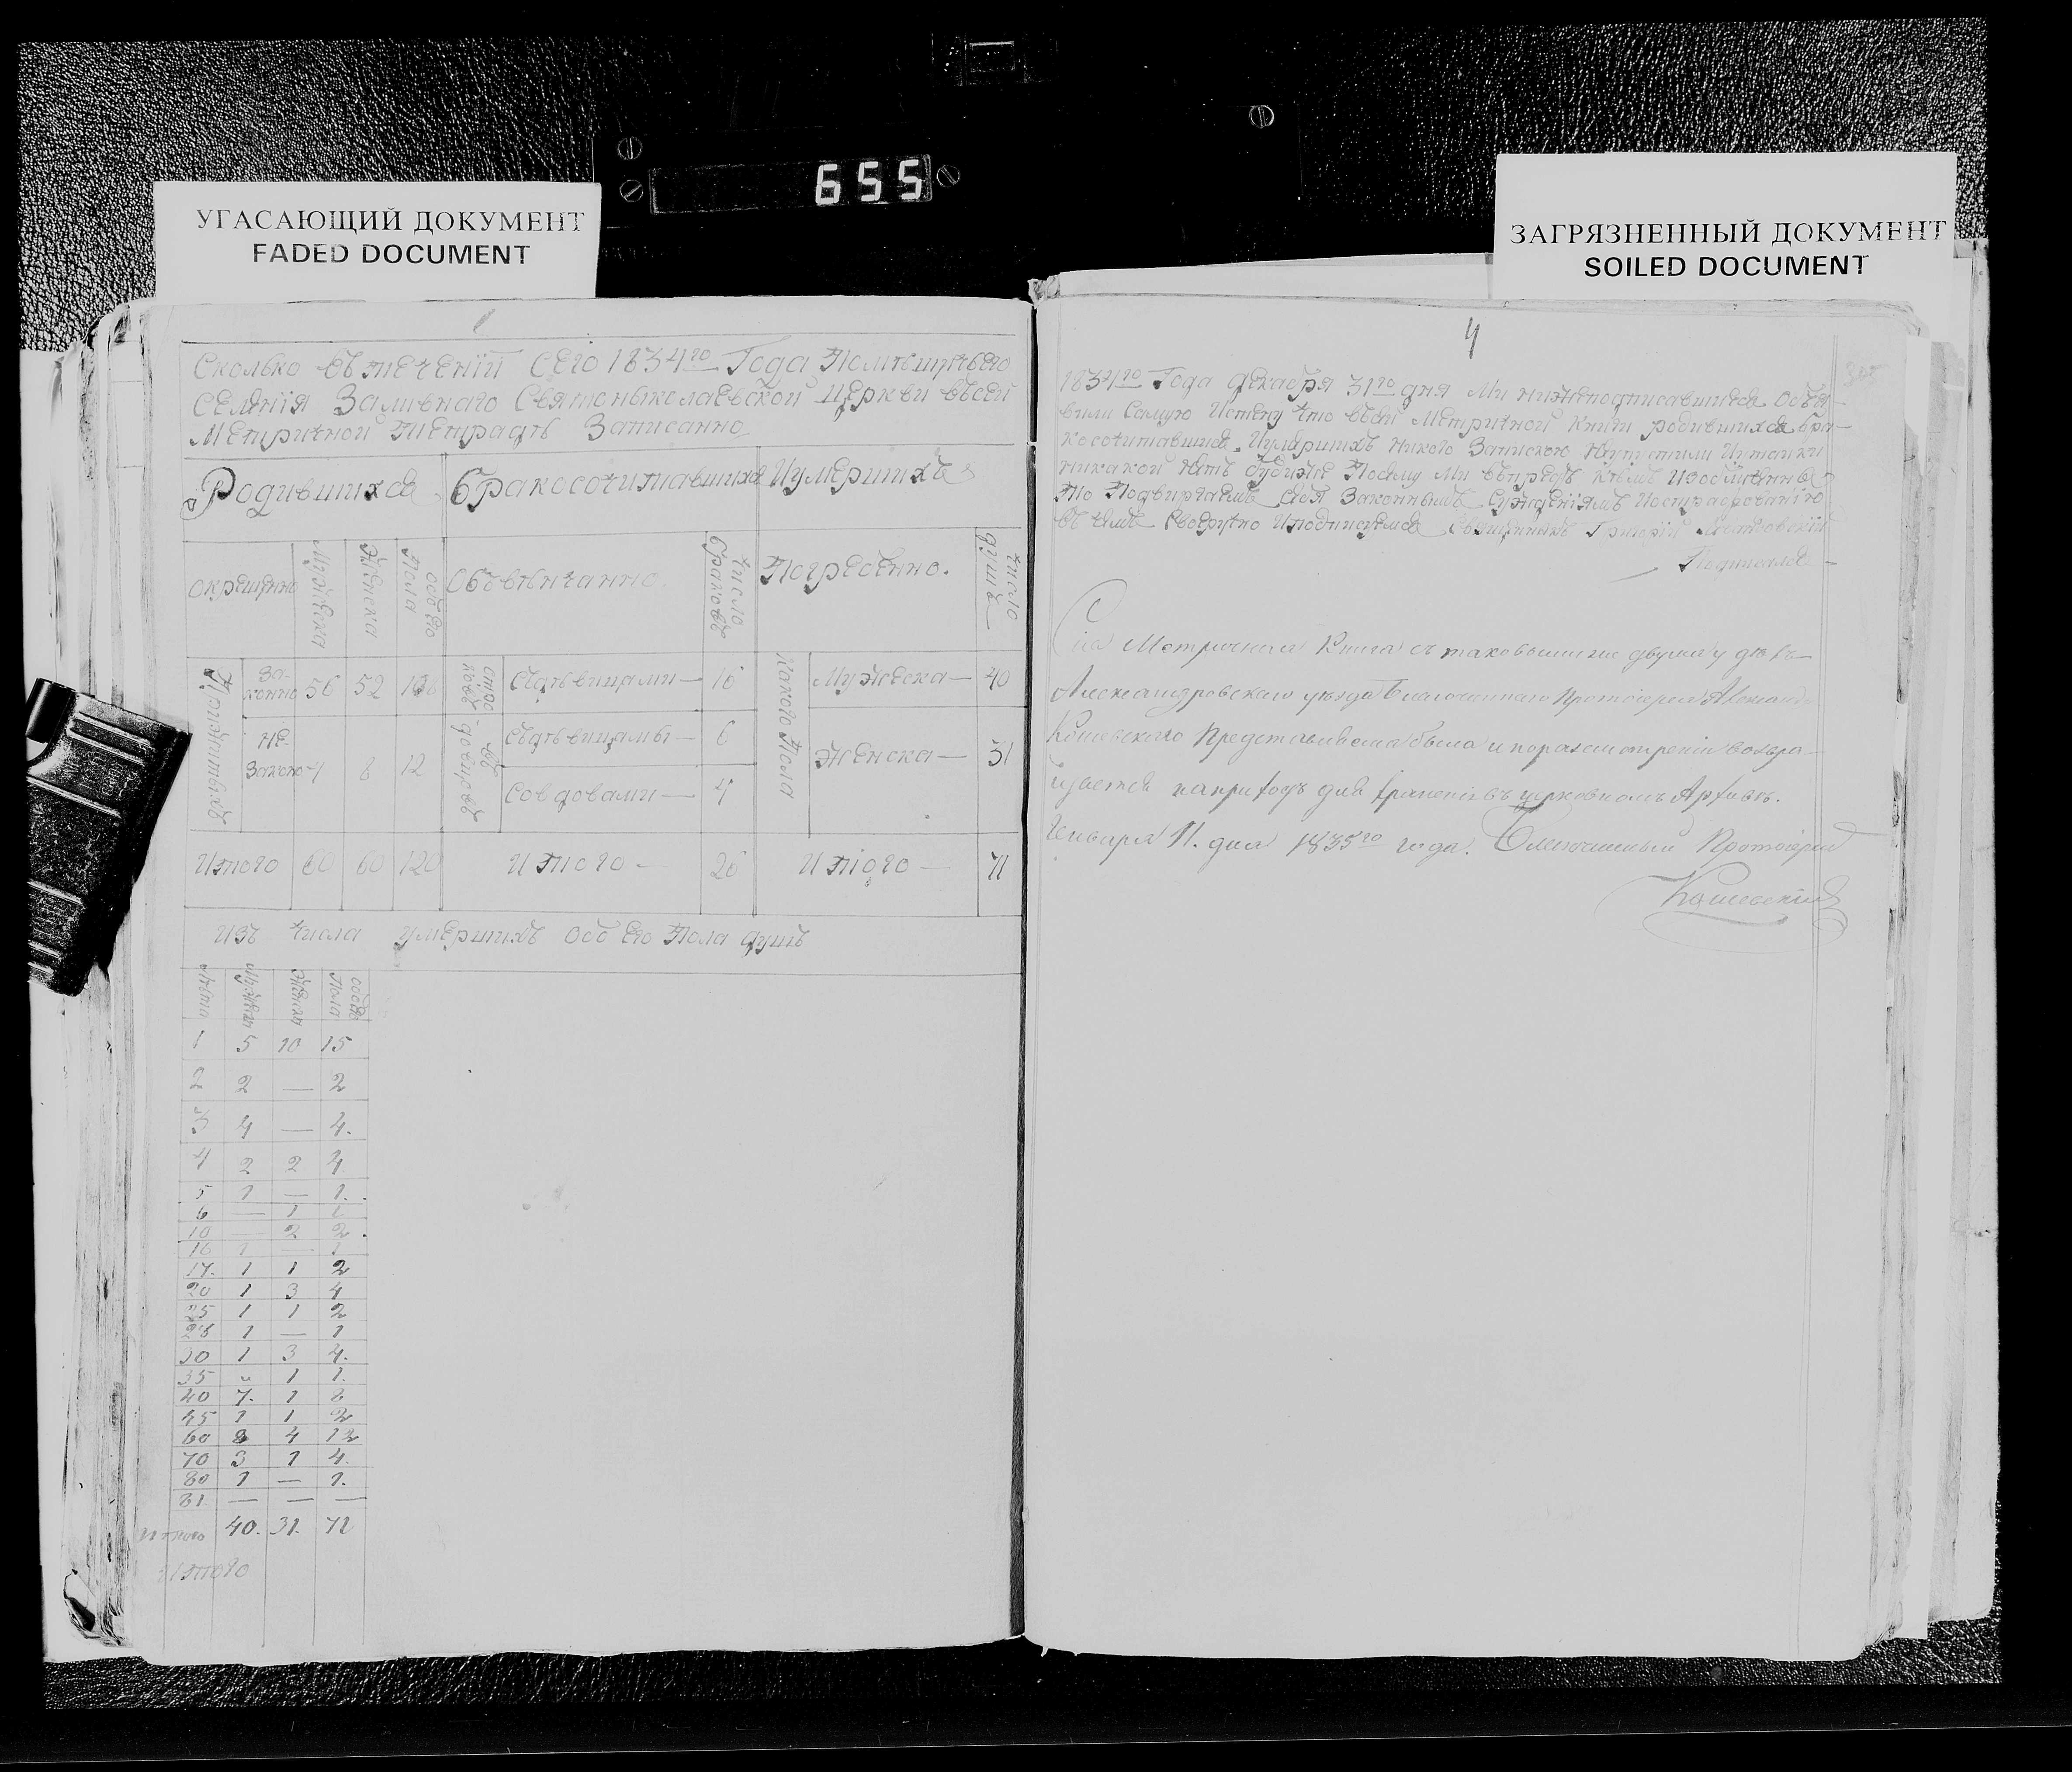 655
УГАСАЮЩИЙ ДОКУМЕНТ
FADED DOCUMENT
ЗАГРЯЗНЕННЫЙ ДОКУМЕНТ
SOILED DOCUMENT
Сколько втечений сего 1834го Года Помещичьего
селения Заливнаго Святониколаевской Церкви всей
Метричной тетрадѣ Записанно
Родившихся Бракосочитавшихся Иумершихъ
окрещенно Мужеска Женска Обоего Пола Обвѣнчанно Число Браковъ Погребенно. Число душъ
За-
конно 56 52 108 съдѣвицами 16 Какого Пола Мужеска 40
Не-
Законо 4 8 12 съдѣвицамы 6 Женска 31
Совдовами 4
Итого 60 60 120 Итого 26 Итого 71
Изъ числа умершихъ Обоего Пола душъ
Лѣта Мужеска Женска Обоего Пола
1 5 10 15
2 2 — 2
3 4 — 4.
4 2 2 4
5 1 — 1.
6 — 1 1
10 — 2 2.
16 1 — 1
17. 1 1 2
20 1 3 4
25 1 1 2
28 1 — 1
30 1 3 4.
35 1 1.
40 7. 1 8
45 1 1 2
60 8 4 12
70 3 1 4.
80 1 — 1.
81 — — —
Итого 40. 31. 71
Итого
4
1834го Года Декабря 31го дня Ми нижеподписавшиеся Объя-
вили Самую Истену что въсей Метричной Книги родившихся бра-
косочитавшихся Иумершихъ никого Запискою
никакой нетъ будиже Посему Ми впредь
то Подвиргаемъ себя Законнымъ Сужденіямъ
въ чемъ Своеручно Иподписуемся Священникъ Григорій
Подписался
Сія Метрическая Книга съ таковымиже двумя у дѣлъ
Александровского уѣзда Благочиннаго Протоіерея Александра
Кошевского Представлена была и поразсмотреніи возвра-
щается наприходъ для храненія въ церковномъ Архивѣ.
Января 11. дня 1835го года. Благочинный Протоіерей
Кошевский